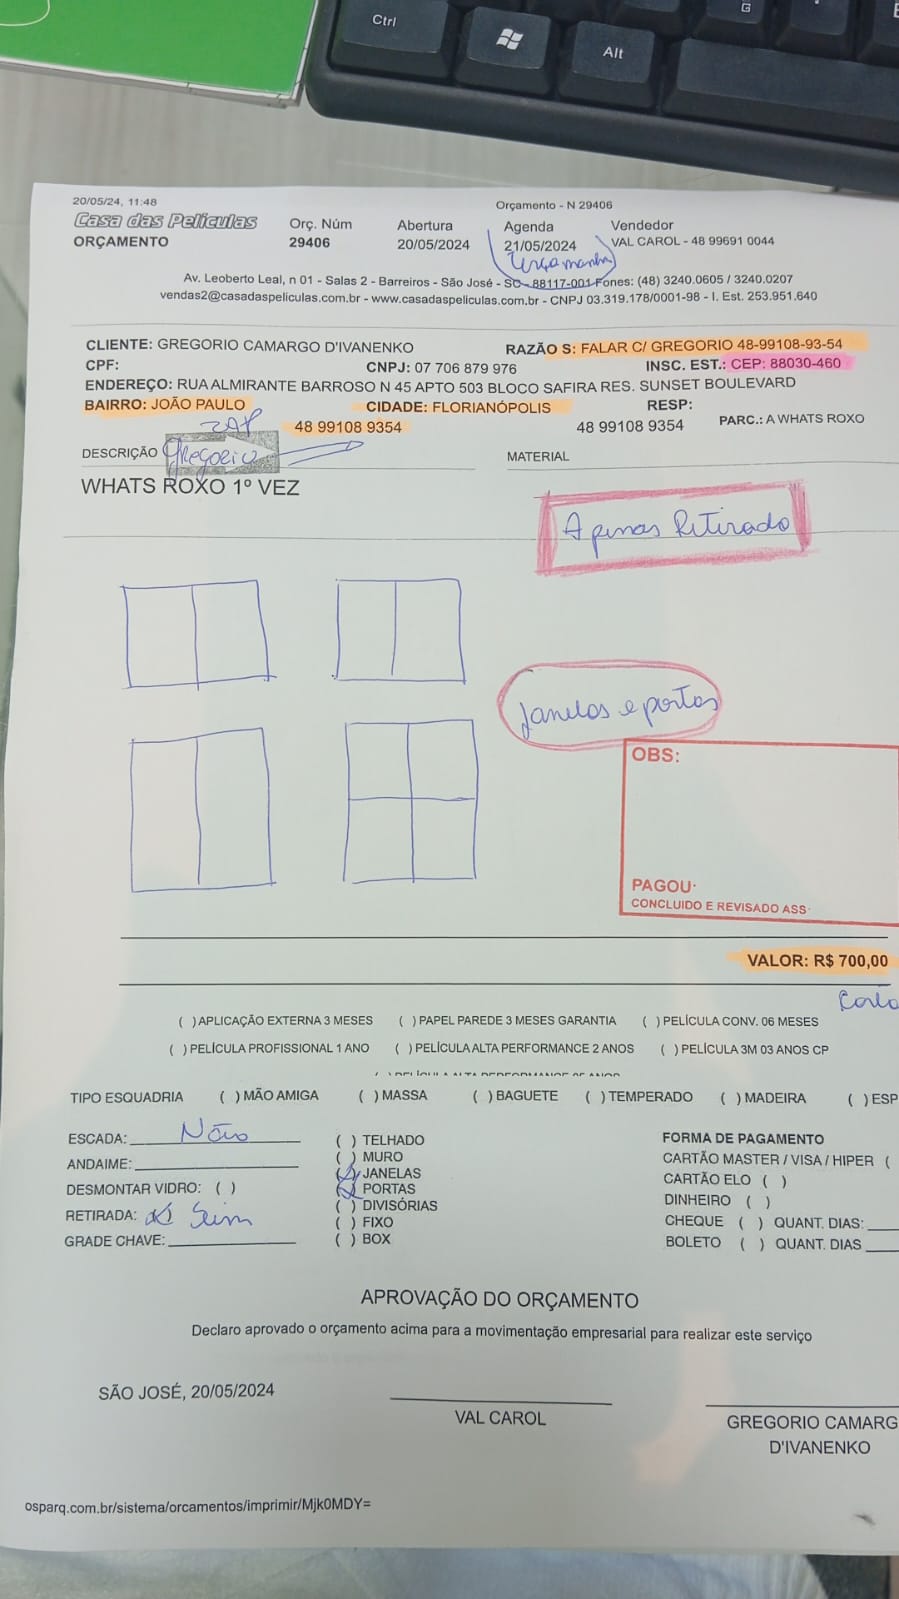 Ctrl
Alt
G
20/05/24, 11:48
Orçamento - N 29406
Casa das Películas
Orç. Núm
Abertura
Agenda
Vendedor
ORÇAMENTO
29406
20/05/2024
21/05/2024
VAL CAROL - 48 99691 0044
terça manhã
Av. Leoberto Leal, n 01 - Salas 2 - Barreiros - São José - SC - 88117-001 Fones: (48) 3240.0605 / 3240.0207
vendas2@casadaspeliculas.com.br - www.casadaspeliculas.com.br - CNPJ 03.319.178/0001-98 - I. Est. 253.951.640
CLIENTE: GREGORIO CAMARGO D'IVANENKO
RAZÃO S: FALAR C/ GREGORIO 48-99108-93-54
CPF:
CNPJ: 07 706 879 976
INSC. EST.: CEP: 88030-460
ENDEREÇO: RUA ALMIRANTE BARROSO N 45 APTO 503 BLOCO SAFIRA RES. SUNSET BOULEVARD
BAIRRO: JOÃO PAULO
CIDADE: FLORIANÓPOLIS
RESP:
ZAP
48 99108 9354
48 99108 9354
PARC.: A WHATS ROXO
DESCRIÇÃO
Gregorio
MATERIAL
WHATS ROXO 1º VEZ
Apenas Retirado
Janelas e portas
OBS:
PAGOU:
CONCLUIDO E REVISADO ASS:
VALOR: R$ 700,00
( ) APLICAÇÃO EXTERNA 3 MESES ( ) PAPEL PAREDE 3 MESES GARANTIA ( ) PELÍCULA CONV. 06 MESES
( ) PELÍCULA PROFISSIONAL 1 ANO ( ) PELÍCULA ALTA PERFORMANCE 2 ANOS ( ) PELÍCULA 3M 03 ANOS CP
TIPO ESQUADRIA ( ) MÃO AMIGA ( ) MASSA ( ) BAGUETE ( ) TEMPERADO ( ) MADEIRA ( ) ESP
ESCADA: Não
ANDAIME:
DESMONTAR VIDRO: ( )
RETIRADA: (x) Sim
GRADE CHAVE:
( ) TELHADO
( ) MURO
(x) JANELAS
(x) PORTAS
( ) DIVISÓRIAS
( ) FIXO
( ) BOX
FORMA DE PAGAMENTO
CARTÃO MASTER / VISA / HIPER (
CARTÃO ELO ( )
DINHEIRO ( )
CHEQUE ( ) QUANT. DIAS:
BOLETO ( ) QUANT. DIAS
APROVAÇÃO DO ORÇAMENTO
Declaro aprovado o orçamento acima para a movimentação empresarial para realizar este serviço
SÃO JOSÉ, 20/05/2024
VAL CAROL
GREGORIO CAMARG
D'IVANENKO
osparq.com.br/sistema/orcamentos/imprimir/Mjk0MDY=